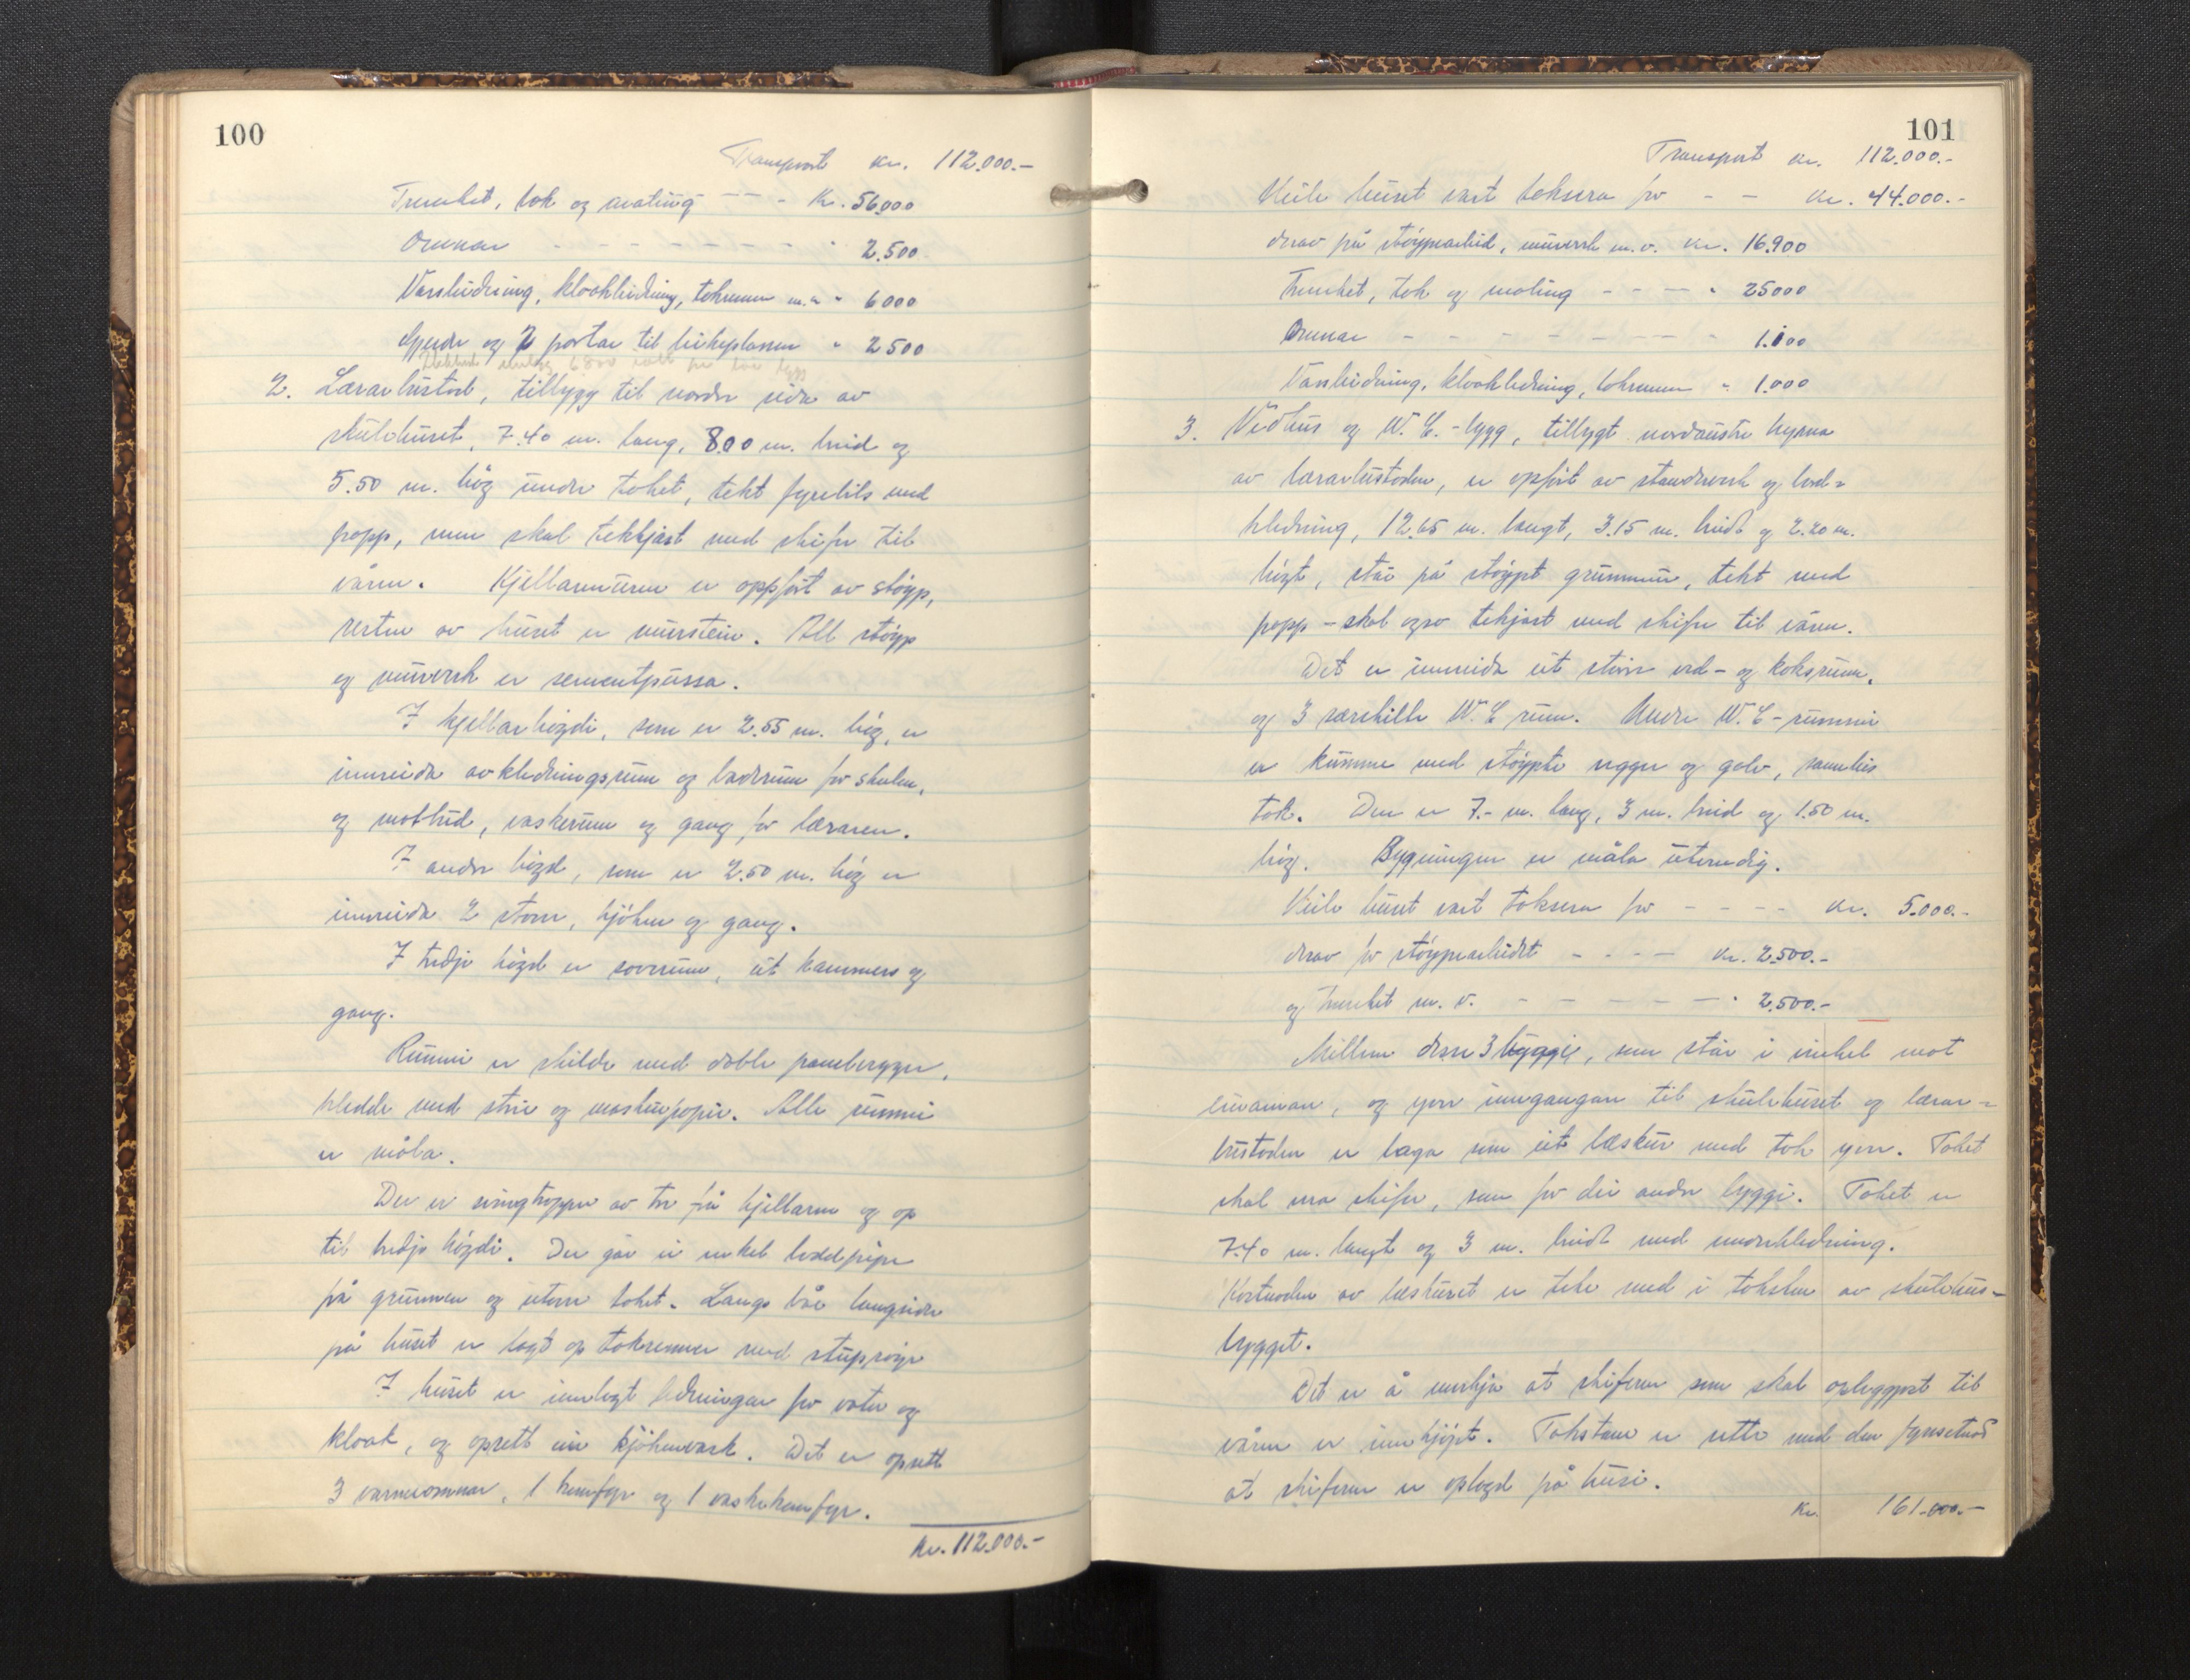 100
Transport kr. 112.000.-
Trearbeid, tak og maling - - - Kr. 56000
Omnar - - - - - - - - " 2.500
Vassleidning, kloakleidning, takrenner m.m. " 6000
Gjerde og 2 portar til leikeplassen " 2500
2. Lærarbustad, tilbygg til nordre sida av
skulehuset, 7.40 m. lang, 8.00 m. breid og
5.50 m. høg under taket, tekt fyrebils med
papp, men skal tekkjast med skifer til
våren. Kjellarmuren er oppført av støyp,
resten av huset er murstein. All støyp
og murverk er sementpussa.
I kjellarhøgdi, som er 2.55 m. høg, er
innreida avkledningsrum og badrum for skulen,
og matbud, vaskerum og gang for læraren.
I andre høgd, som er 2.50 m. høg er
innreida 2 stover, kjøken og gang.
I tredje høgd er 2 soverum, eit kammers og
gang.
Rummi er skilde med doble panelvegger,
kledde med strie og maskinpapir. Alle rummi
er måla.
Der er svingtrapper av tre frå kjellaren og op
til tredje høgdi. Der går ei enkel teglpipe
på grunnen og utover taket. Langs båe langsider
på huset er lagt op takrenner med stuprøyr
I huset er innlagt ledningar for vatn og
kloak, og opsett ein kjøkenvask. Det er opsett
3 varmeomnar, 1 komfyr og 1 vaskekomfyr.
Kr. 112.000.-
101
Transport kr. 112.000.-
Heile huset vart taksera for - - kr. 44.000.-
derav på støypearbeid, murverk m.v. kr. 16.900
Trearbeid, tak og maling - - - - " 25000
Omnar - - - - - - - - - 1.100
Vassleidning, kloakledning, takrenner " 1.000
3. Vedhus og W.C.-bygg, tilbygt nordaustre hyrna
av lærarbustaden, er opført av stenderverk og bord-
kledning, 12.65 m. langt, 3.15 m. breidt og 2.20 m.
høgt, står på støypt grunnmur, tekt med
papp - skal ogso tekjast med skifer til våren.
Det er innreida eit større ved- og koksrum,
og 3 særskilte W.C rum. Under W.C-rummi
er kumme med støypte vegger og golv, samleis
tak. Den er 7.- m. lang, 3 m. breid og 1.50 m.
høg. Bygningen er måla utvendig.
Heile huset vart taksera for - - - - kr. 5.000.-
derav for støypearbeidet - - - - kr. 2.500.-
og trearbeid m.v. - - - - - - " 2.500.-
Millom desse 3 byggje, som står i vinkel mot
einannan, og yver inngangan til skulehuset og lærar-
bustaden er laga som eit leskur med tak yver. Taket
skal vera skifer, som for dei andre byggje. Taket er
7.40 m. langt og 3 m. breidt med underkledning.
Kostnaden av leskuret er teke med i taksten av skulehus-
bygget.
Det er å merkja at skiferen som skal opleggjast til
våren er innkjøpt. Takstane er sette med den fyresetnad
at skiferen er oplagd på husi.
Kr. 161.000.-